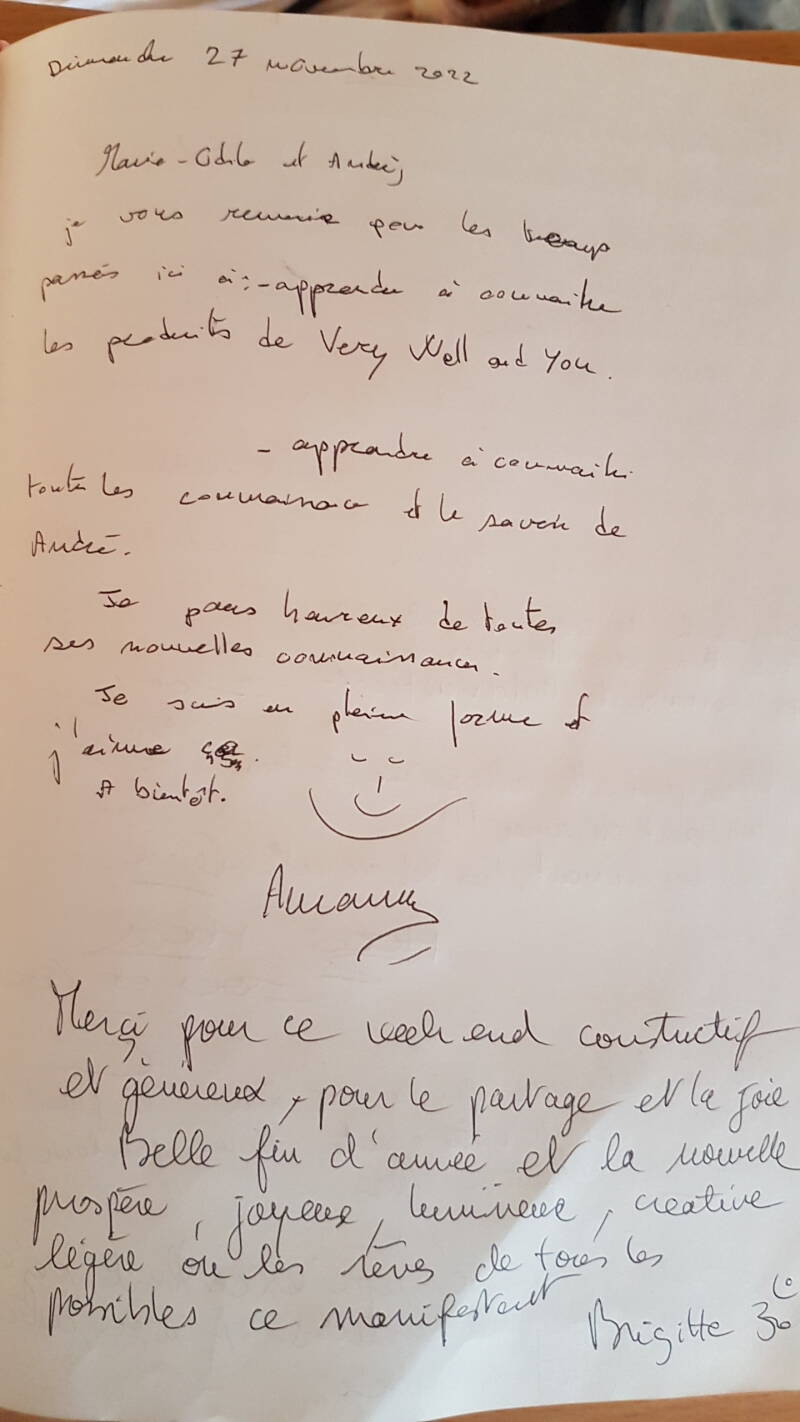 Dimanche 27 novembre 2022
Marie-Odile et André,
je vous remercie pour les temps
passés ici à : - apprendre à connaitre
les produits de Very Well and You.
- apprendre à connaitre
toutes les connaissance et le savoir de
André.
Je pars heureux de toutes
ses nouvelles connaissances.
Je suis en pleine forme et
j'aime ça.
A bientôt.
Merçi pour ce week end constuctif
et généreux, pour le partage et la joie
Belle fin d'année et la nouvelle
prospère, joyeuse, lumineuse, creative
légère où les rêves de tous les
possibles ce manifestent
Brigitte